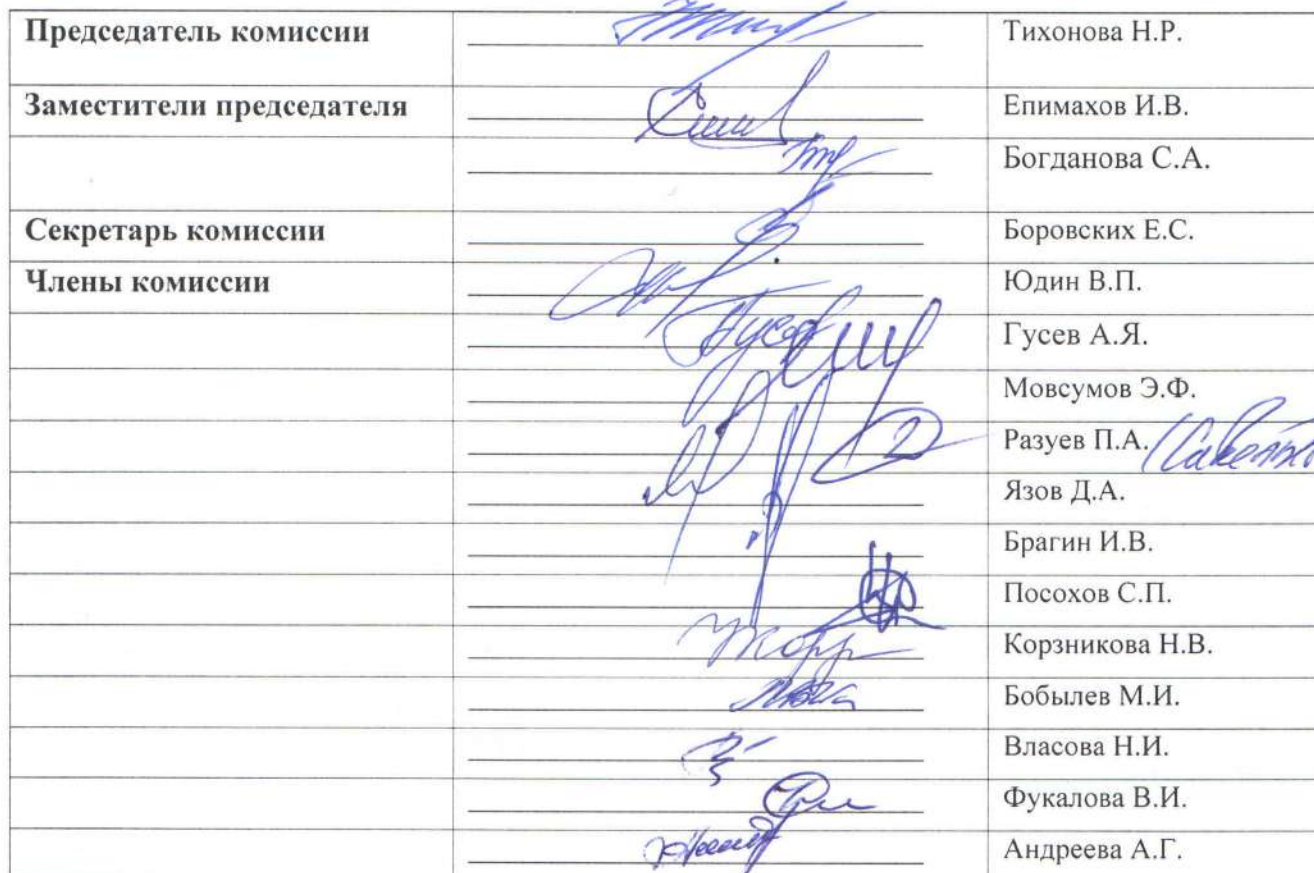 Председатель комиссии Тихонова Н.Р.
Заместители председателя Епимахов И.В.
Богданова С.А.
Секретарь комиссии Боровских Е.С.
Члены комиссии Юдин В.П.
Гусев А.Я.
Мовсумов Э.Ф.
Разуев П.А.
Язов Д.А.
Брагин И.В.
Посохов С.П.
Корзникова Н.В.
Бобылев М.И.
Власова Н.И.
Фукалова В.И.
Андреева А.Г.